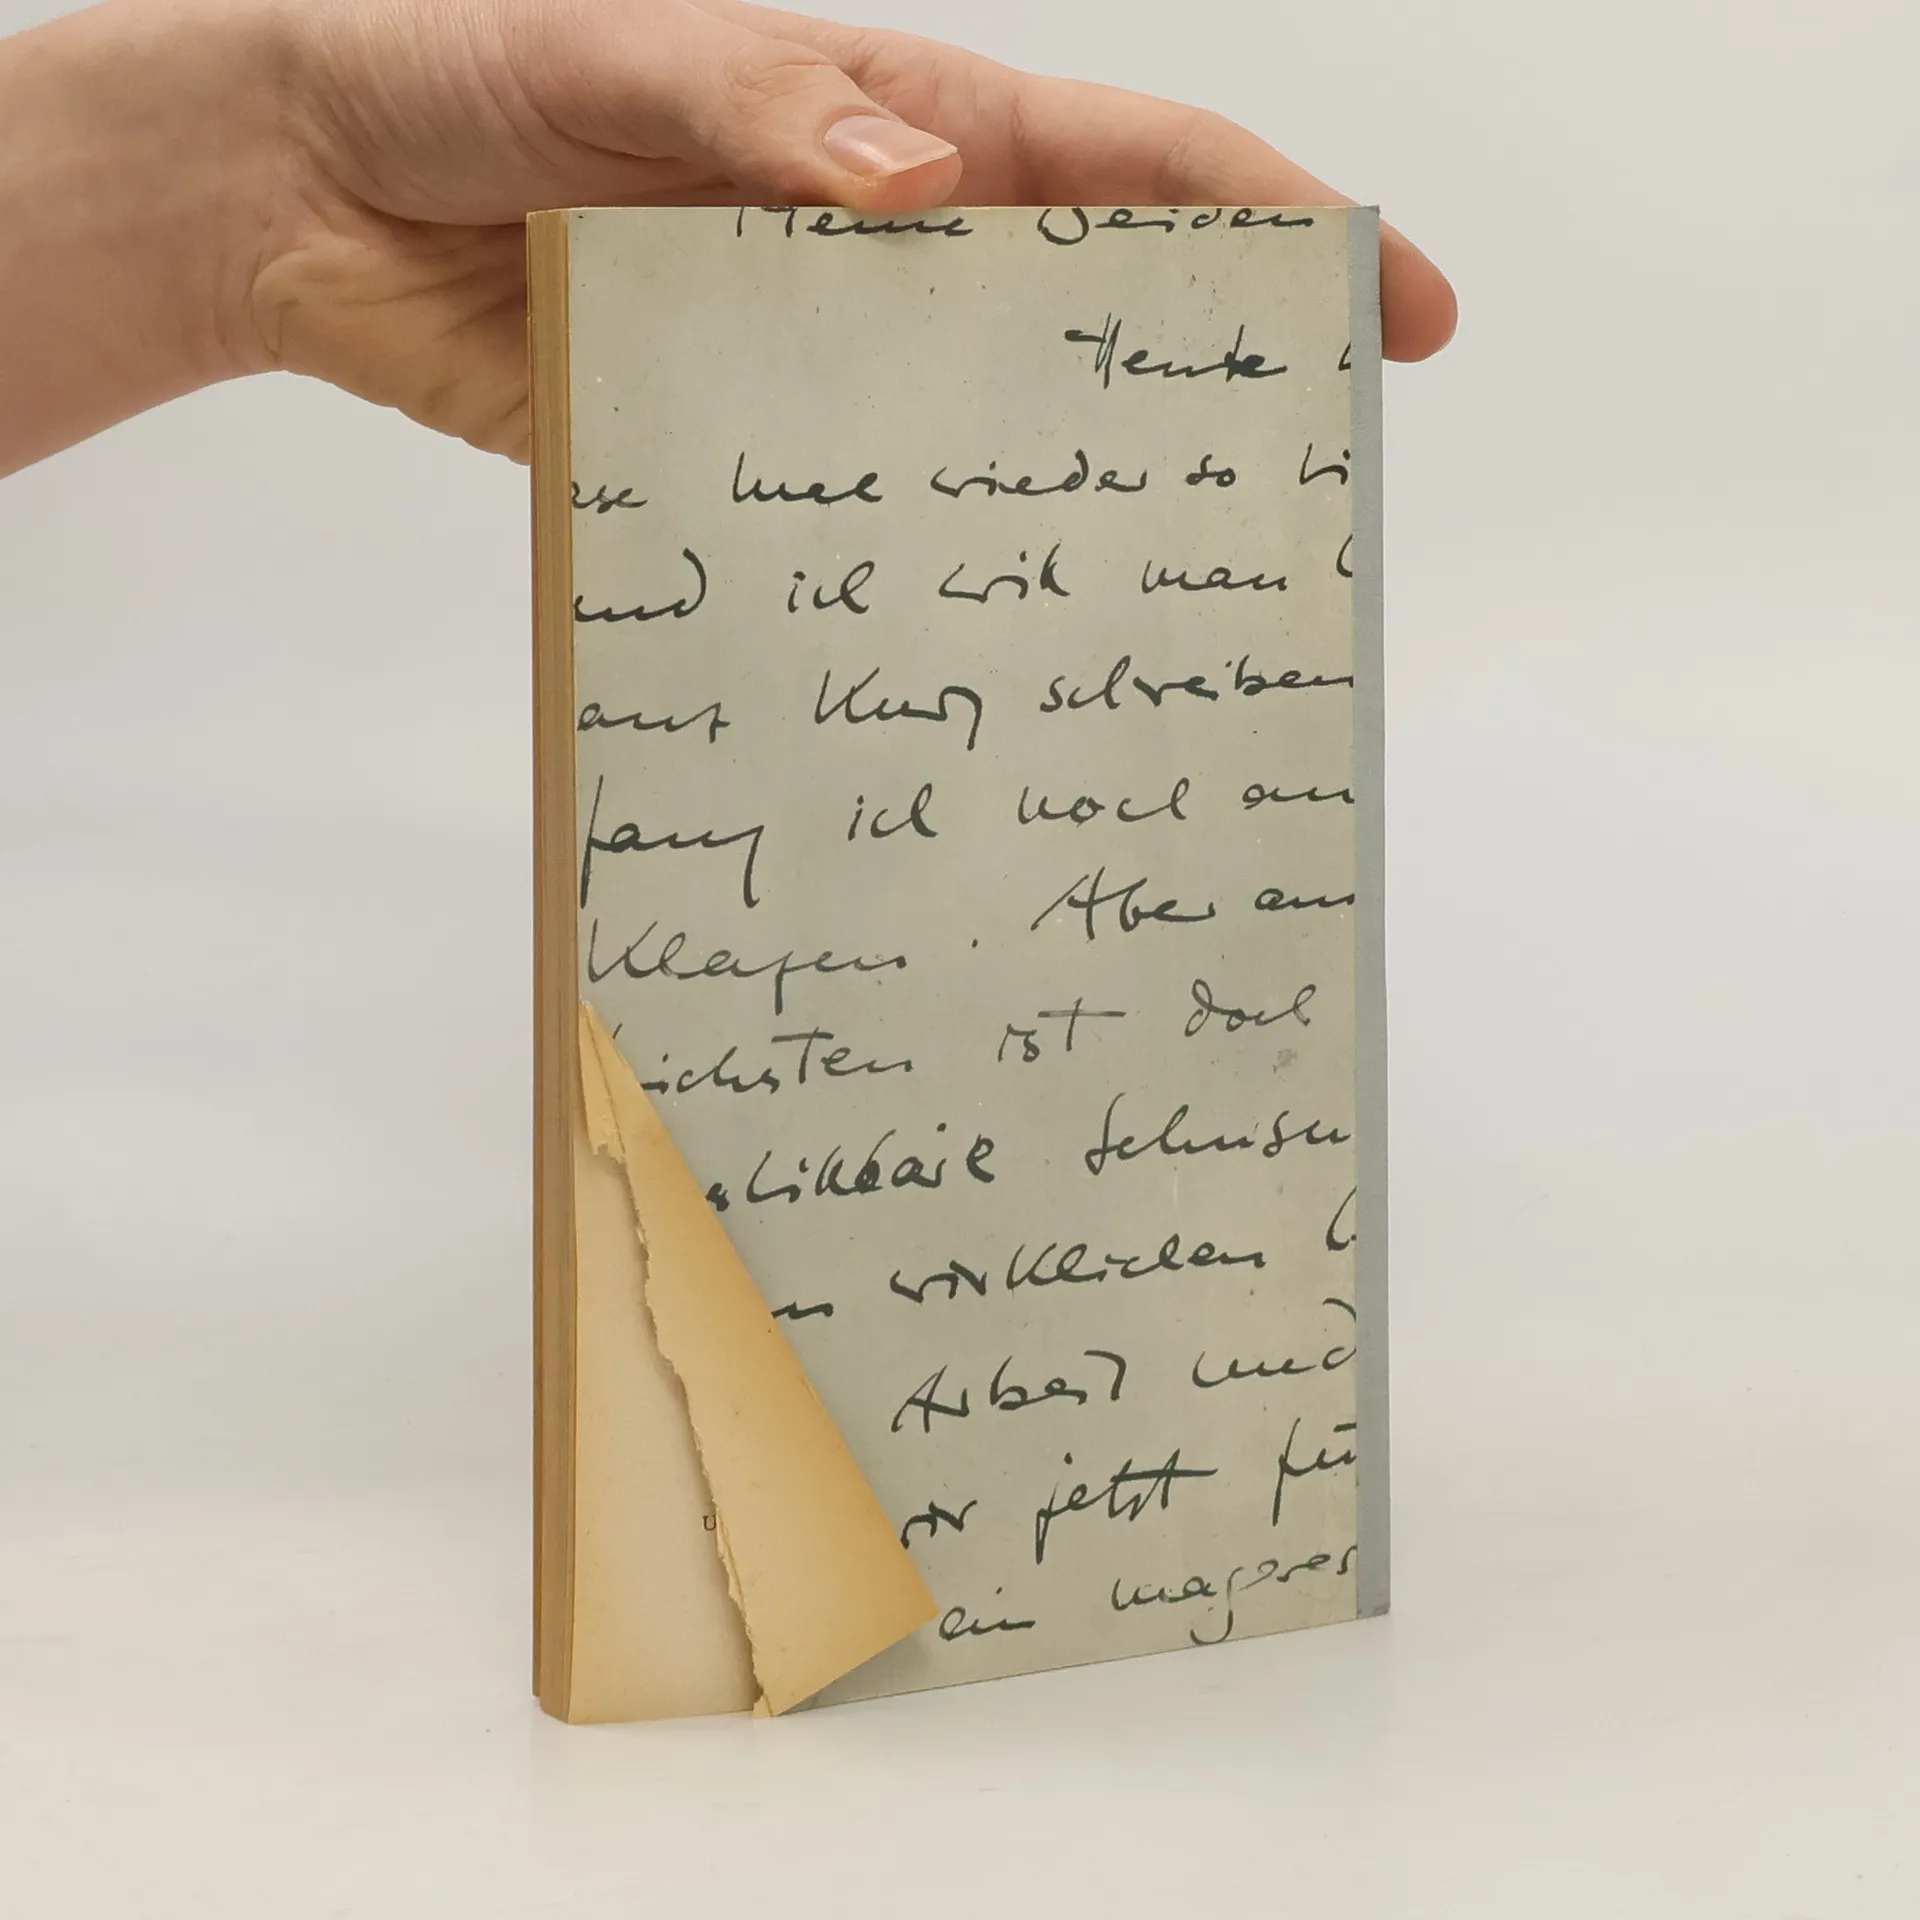 Meine Beiden
Heute
mal wieder so
und ich will man
auf Kurz schreiben
fang ich noch an
Klagen. Aber am
ist doch
Sehnsu
wirklichen
Arbeit und
wir jetzt fü
U
ein mageres